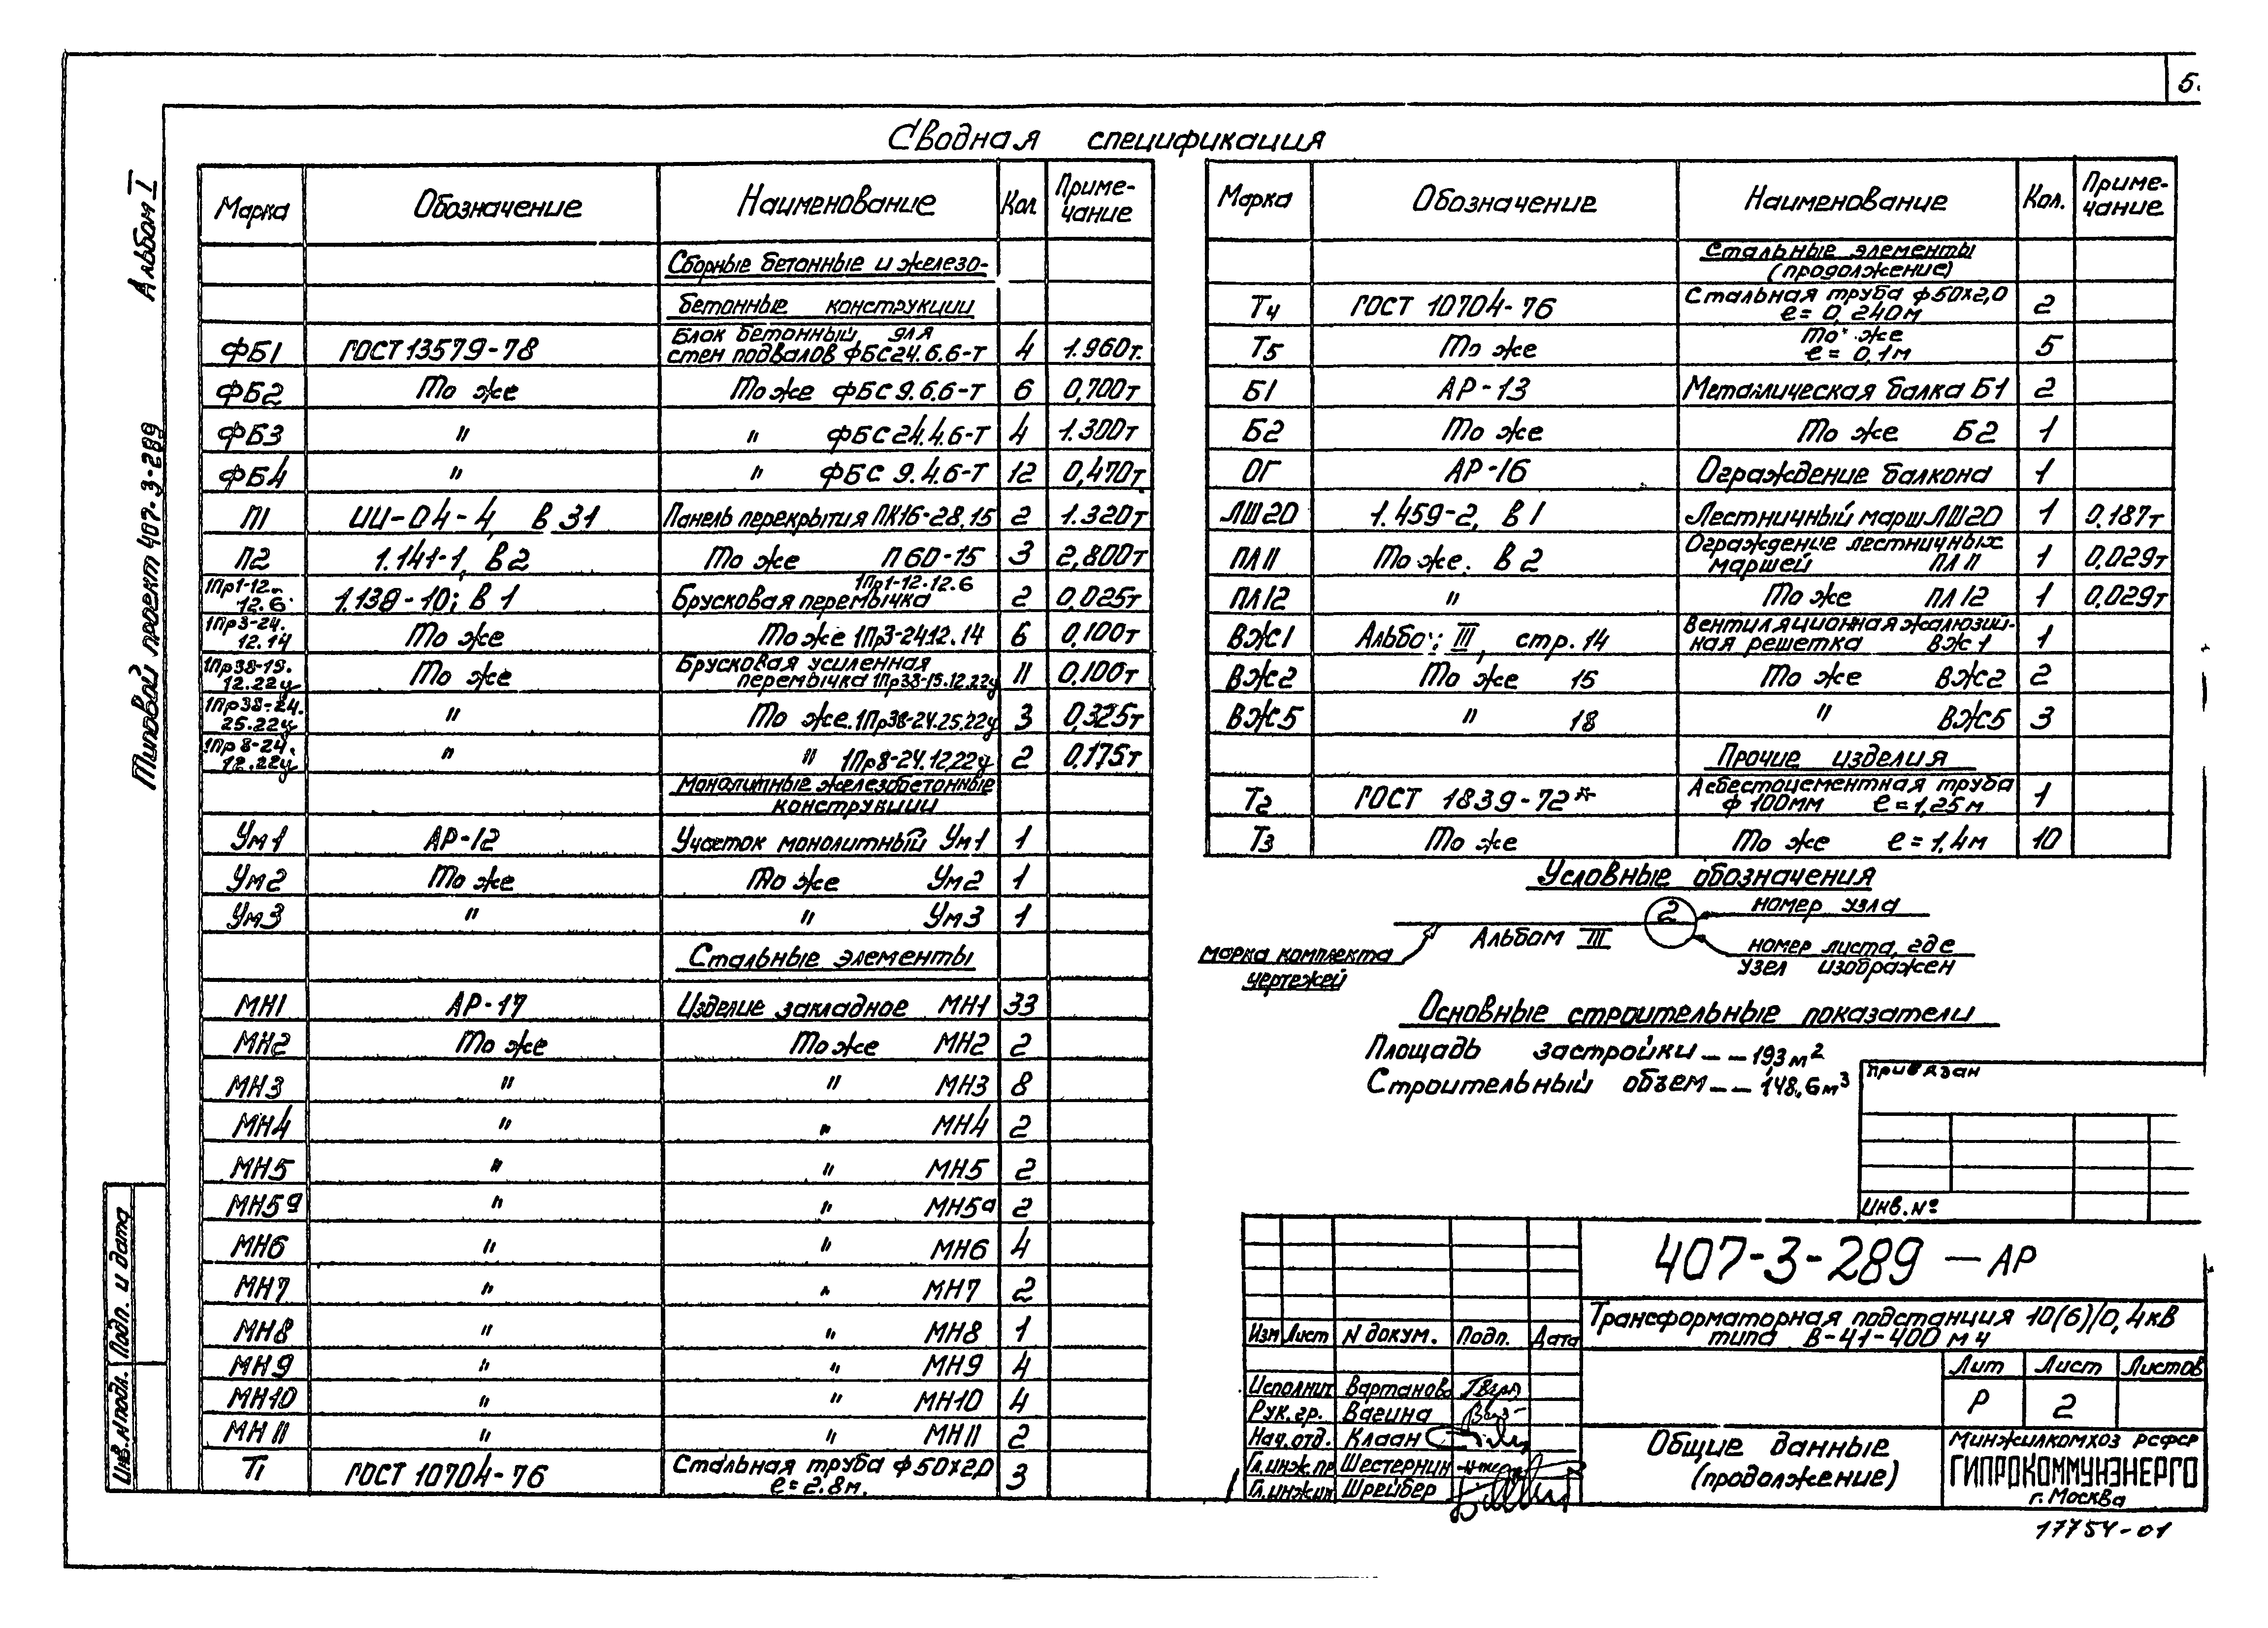 5.
Альбом I
Типовой проект 407-3-289
Сводная спецификация
Марка Обозначение Наименование Кол Приме-
чание
Сборные бетонные и железо-
бетонные конструкции
ФБ1 ГОСТ 13579-78 Блок бетонный для
стен подвалов ФБС24.6.6-Т 4 1.960т.
ФБ2 То же То же ФБС 9.6.6-Т 6 0,700т
ФБ3 " " ФБС 24.4.6-Т 4 1.300т
ФБ4 " " ФБС 9.4.6-Т 12 0,470т
П1 ИИ-04-4, В 31 Панель перекрытия ПК16-28.15 2 1.320т
П2 1.141-1, В2 То же П 60-15 3 2,800т
1Пр1-12.
12.6 1.139-10; В 1 Брусковая перемычка 1Пр1-12.12.6 2 0,025т
1Пр3-24.
12.14 То же То же 1Пр3-24.12.14 6 0,100т
1Пр38-15.
12.22у То же Брусковая усиленная
перемычка 1Пр38-15.12.22у 11 0,100т
1Пр38-24.
25.22у " То же.1Пр38-24.25.22у 3 0,325т
1Пр8-24.
12.22у " " 1Пр8-24.12.22у 2 0,175т
Монолитные железобетонные
конструкции
Ум1 АР-12 Участок монолитный Ум1 1
Ум2 То же То же Ум2 1
Ум3 " " Ум3 1
Стальные элементы
МН1 АР-17 Изделие закладное МН1 33
МН2 То же То же МН2 2
МН3 " " МН3 8
МН4 " " МН4 2
МН5 " " МН5 2
МН5а " " МН5а 2
МН6 " " МН6 4
МН7 " " МН7 2
МН8 " " МН8 1
МН9 " " МН9 4
МН10 " " МН10 4
МН11 " " МН11 2
Т1 ГОСТ 10704-76 Стальная труба ф50х2,0
е=2.8м. 3
Марка Обозначение Наименование Кол. Приме-
чание
Стальные элементы
(продолжение)
Т4 ГОСТ 10704-76 Стальная труба ф50х2,0
е= 0,240м 2
Т5 То же То же
е= 0,1м 5
Б1 АР-13 Металлическая балка Б1 2
Б2 То же То же Б2 1
ОГ АР-16 Ограждение балкона 1
ЛШ20 1.459-2, В 1 Лестничный марш ЛШ20 1 0.187т
ПЛ11 То же. В 2 Ограждение лестничных
маршей ПЛ11 1 0,029т
ПЛ12 " То же ПЛ12 1 0,029т
ВЖ1 Альбо: III, стр. 14 Вентиляционная жалюзий-
ная решетка ВЖ1 1
ВЖ2 То же 15 То же ВЖ2 2
ВЖ5 " 18 " ВЖ5 3
Прочие изделия
Т2 ГОСТ 1839-72* Асбестоцементная труба
ф 100мм е=1,25м 1
Т3 То же То же е=1,4м 10
Условные обозначения
2 номер узла
марка комплекта
чертежей
Альбом III
номер листа, где
узел изображен
Основные строительные показатели
Площадь застройки -- 19,3м²
Строительный объем -- 148,6м³
Привязан
Инв. №
407-3-289 - АР
Трансформаторная подстанция 10(6)/0,4кВ
типа В-41-400 м4
Изм Лист N докум. Подп. Дата
Исполнит Вартанова
Рук. гр. Вагина
Нач. отд. Клаан
Гл.инж.пр Шестернин
Гл.инжин Шрейбер
Лит Лист Листов
Р 2
Общие данные
(продолжение)
Минжилкомхоз РСФСР
ГИПРОКОММУНЭНЕРГО
г. Москва
17754-01
Инв. N подл. Подп. и дата